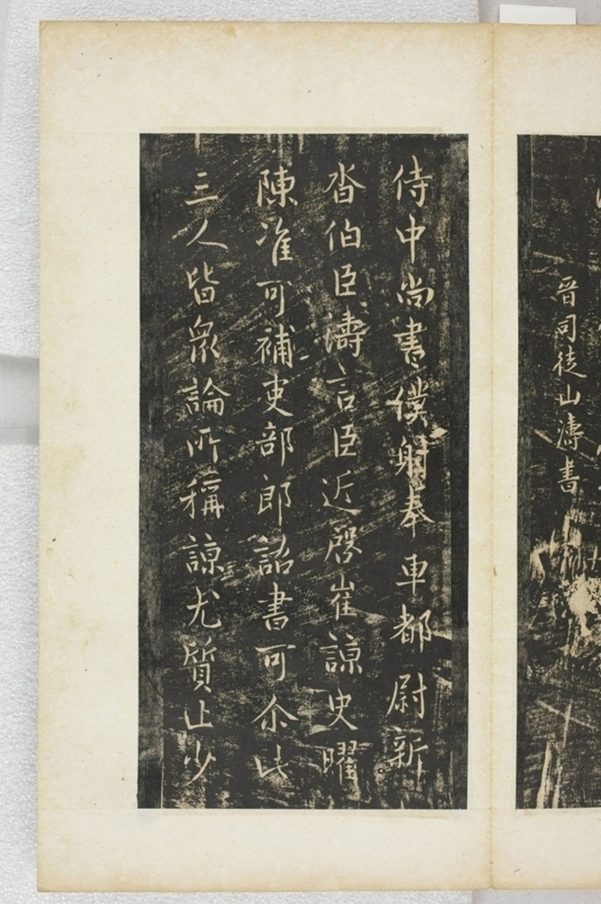 晉司徒山濤書
侍中尚書僕射奉車都尉新
沓伯臣濤言臣近啓崔諒史曜
陳准可補吏部郎詔書可尒此
三人皆衆論所稱諒尤質止少